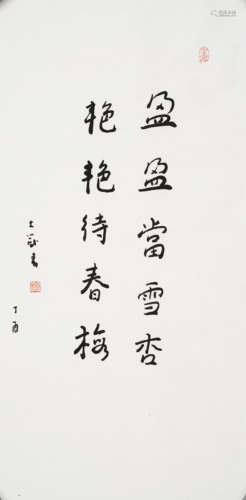 盈盈當雪杏
艷艷待春梅
丁酉